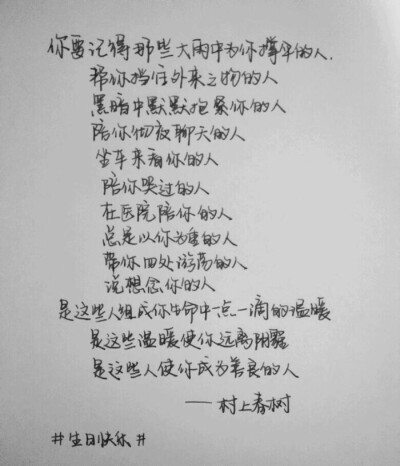 你要记得那些大雨中为你撑伞的人.
帮你挡住外来之物的人
黑暗中默默抱紧你的人
陪你彻夜聊天的人
坐车来看你的人
陪你哭过的人
在医院陪你的人
总是以你为重的人
带你四处游荡的人
说想念你的人
是这些人组成你生命中一点一滴的温暖
是这些温暖使你远离阴霾
是这些人使你成为善良的人
——村上春树
#生日快乐#